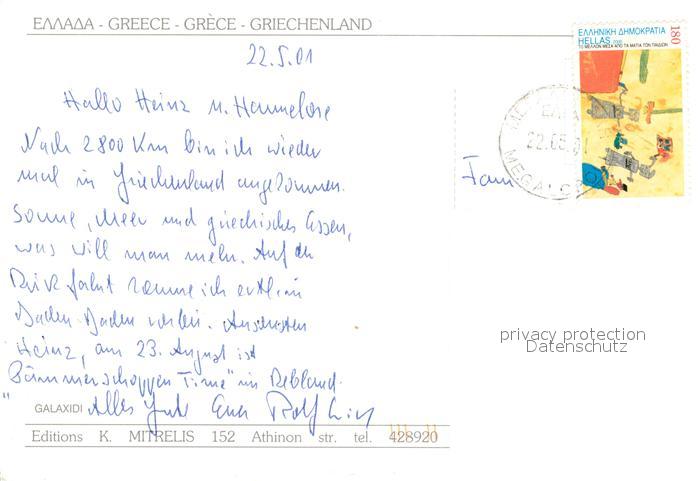 ΕΛΛΑΔΑ - GREECE - GRÈCE - GRIECHENLAND
22.5.01
Hallo Heinz u. Hannelore
Nach 2800 Km bin ich wieder
mal in Griechenland angekommen.
Sonne, Meer und griechisches Essen,
was will man mehr. Auf der
Rückfahrt komme ich evtl. in
Baden-Baden vorbei. Ansonsten
Heinz, am 23. August ist
"Dämmerschoppen Time" im Rebland.
Alles Gute Euer Rolf
GALAXIDI
Editions K. MITRELIS 152 Athinon str. tel. 428920
Fam
ΕΛΛΗΝΙΚΗ ΔΗΜΟΚΡΑΤΙΑ
HELLAS 2000
ΤΟ ΜΕΛΛΟΝ ΜΕΣΑ ΑΠΟ ΤΑ ΜΑΤΙΑ ΤΩΝ ΠΑΙΔΙΩΝ
180
22.05.01
privacy protection
Datenschutz